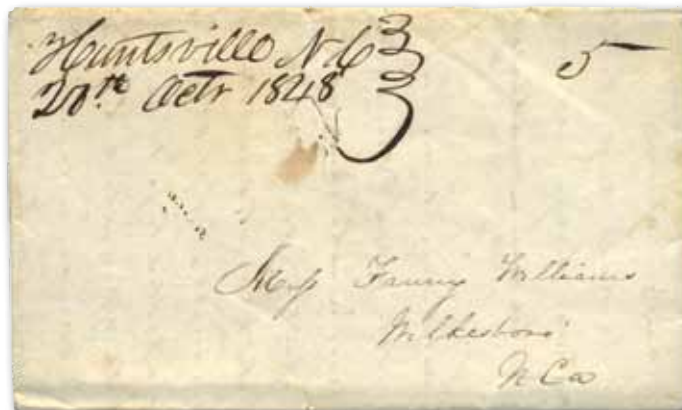 Huntsville N C
20th Octr 1848
5
Miss Fanny Williams
Wilkesboro'
N Ca